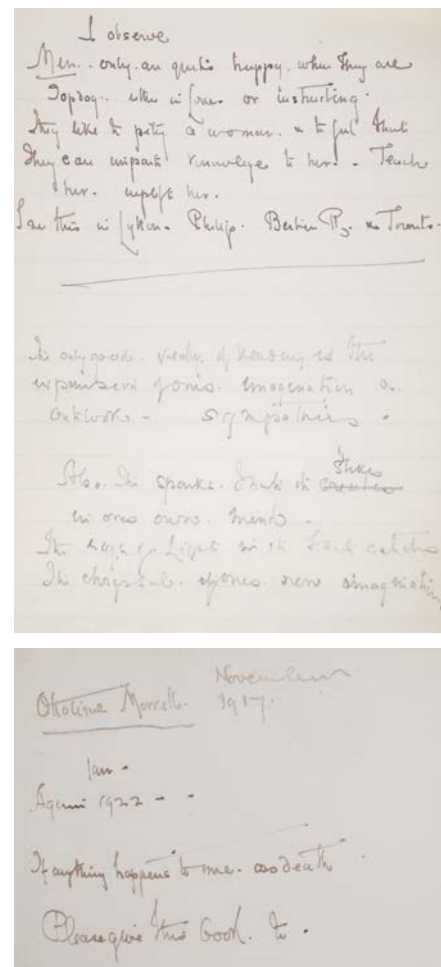 I observe
Men.. only are quite happy. when they are
Topdog. either in love. or instructing.
They like to pity a woman. & to feel that
they can impart knowledge to her. - Teach
her. uplift her.
I see this in Lytton. Philip. Bertie R. & Toronto.
The only good. of reading is the
expansion of one's imagination &
outlook - sympathies.
Also. the sparks. that it strikes
in one's own. mind.
The rays of Light that catches
The chrystals. of one's own imagination
Ottoline Morrell. November
1917.
Jan.
Again 1922 - -
If anything happens to me. as death
Please give this book. to.